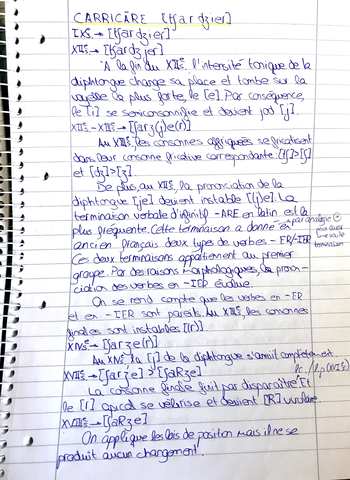 CARRICĀRE [tʃardʒier]
IXS. → [tʃardʒier]
XIIS. → [tʃardʒjer]
A la fin du XIIS. l'intensité tonique de la
diphtongue change sa place et tombe sur la
voyelle la plus forte, le [e]. Par conséquence,
le [i] se semiconsonnifie et devient jod [j].
XIIS-XIIIS → [ʃarʒ(j)e(r)]
Au XIIIS, les consonnes affriquées se fricatisent
dans leur consonne fricative correspondante: [tʃ]>[ʃ]
et [dʒ]>[ʒ].
De plus, au XIIIS, la prononciation de la
diphtongue [je] devient instable [(j)e]. La
terminaison verbale d'infinitif -ARE en latin est la
plus fréquente. Cette terminaison a donné en
ancien français deux types de verbes -ER/-IER
par analogie
pour avoir
une seule
terminaison
Ces deux terminaisons appartiennent au premier
groupe. Par des raisons morphologiques, la pronon-
ciation des verbes en -IER évolue.
On se rend compte que les verbes en -ER
et en -IER sont pareils. Au XIIIS, les consonnes
finales sont instables [(r)]
XIVS → [ʃarʒe(r)]
Au XIVS, la [j] de la diphtongue s'amuït
XVIIS → [ʃarʒe] > [ʃaRʒe]
La consonne finale finit par disparaître. Et
le [r] apical se vélarise et devient [R] uvulaire.
XVIIIS → [ʃaRʒe]
On applique les lois de position mais il ne se
produit aucun changement.